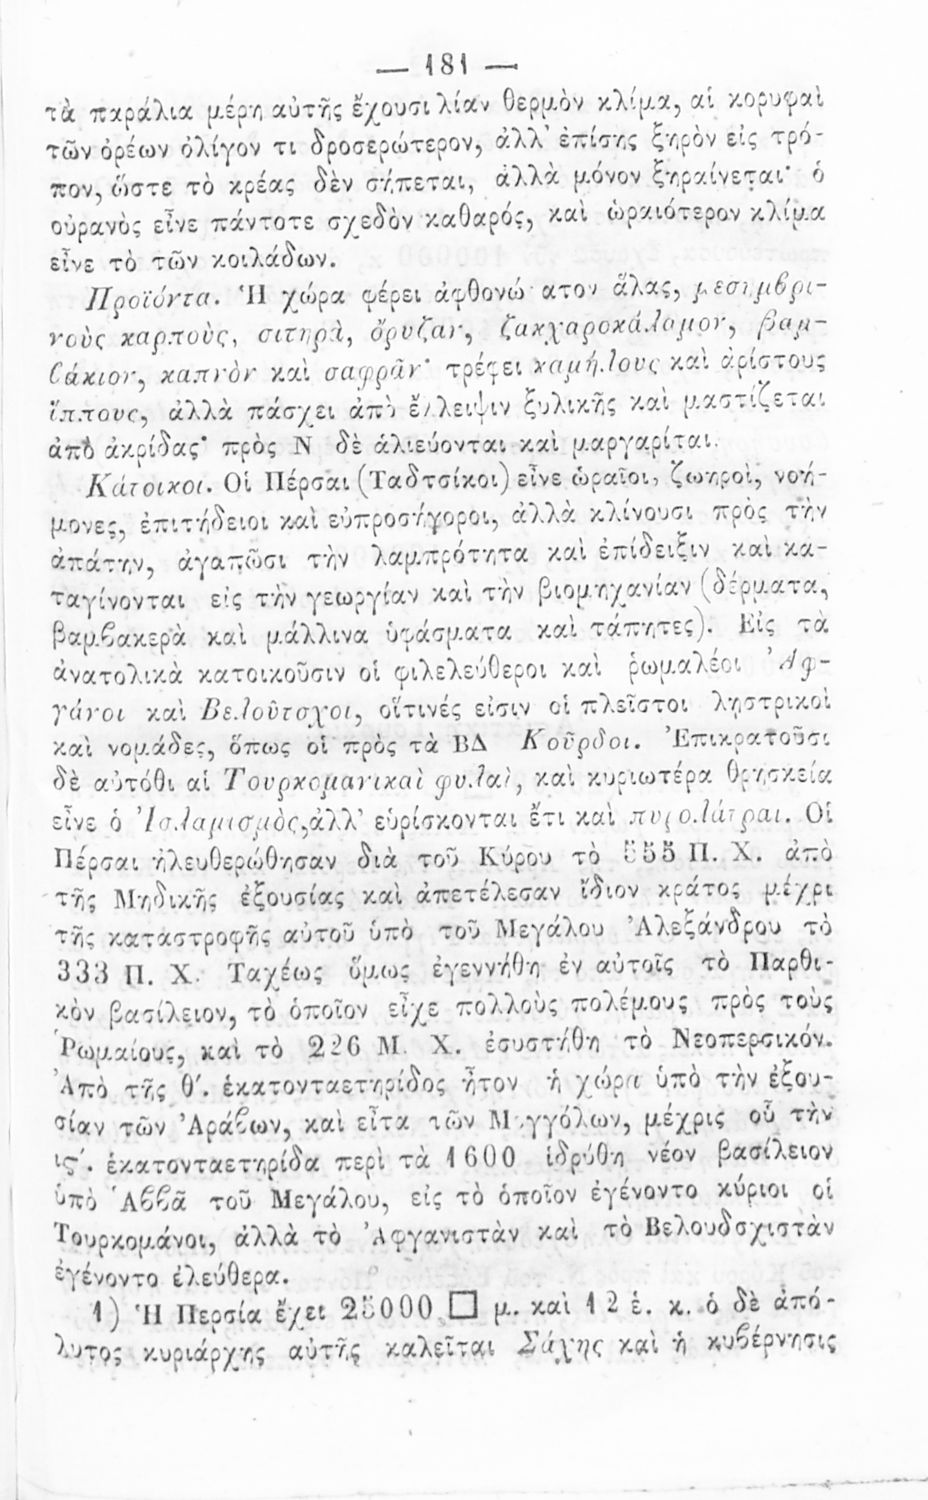 — 181 —
τὰ παράλια μέρη αὐτῆς ἔχουσι λίαν θερμὸν κλίμα, αἱ κορυφαὶ
τῶν ὀρέων ὀλίγον τι δροσερώτερον, ἀλλ' ἐπίσης ξηρὸν εἰς τρό-
πον, ὥστε τὸ κρέας δὲν σήπεται, ἀλλὰ μόνον ξηραίνεται· ὁ
οὐρανὸς εἶνε πάντοτε σχεδὸν καθαρός, καὶ ὡραιότερον κλίμα
εἶνε τὸ τῶν κοιλάδων.
Προϊόντα. Ἡ χώρα φέρει ἀφθονώτατον ἅλας, μεσημβρι-
νοὺς καρποὺς, σιτηρὰ, ὄρυζαν, ζακχαροκάλαμον, βαμ-
βάκιον, καπνὸν καὶ σαφρᾶν· τρέφει καμήλους καὶ ἀρίστους
ἵππους, ἀλλὰ πάσχει ἀπὸ ἔλλειψιν ξυλικῆς καὶ μαστίζεται
ἀπὸ ἀκρίδας· πρὸς Ν δὲ ἁλιεύονται καὶ μαργαρίται.
Κάτοικοι. Οἱ Πέρσαι (Ταδτσίκοι) εἶνε ὡραῖοι, ζωηροὶ, νοή-
μονες, ἐπιτήδειοι καὶ εὐπροσήγοροι, ἀλλὰ κλίνουσι πρὸς τὴν
ἀπάτην, ἀγαπῶσι τὴν λαμπρότητα καὶ ἐπίδειξιν καὶ κα-
ταγίνονται εἰς τὴν γεωργίαν καὶ τὴν βιομηχανίαν (δέρματα,
βαμβακερὰ καὶ μάλλινα ὑφάσματα καὶ τάπητες). Εἰς τὰ
ἀνατολικὰ κατοικοῦσιν οἱ φιλελεύθεροι καὶ ῥωμαλέοι Ἀφ-
γάνοι καὶ Βελοῦτσχοι, οἵτινές εἰσιν οἱ πλεῖστοι λῃστρικοὶ
καὶ νομάδες, ὅπως οἱ πρὸς τὰ ΒΔ Κοῦρδοι. Ἐπικρατοῦσι
δὲ αὐτόθι αἱ Τουρκομανικαὶ φυλαὶ, καὶ κυριωτέρα θρησκεία
εἶνε ὁ Ἰσλαμισμὸς, ἀλλ' εὑρίσκονται ἔτι καὶ πυρολάτραι. Οἱ
Πέρσαι ἠλευθερώθησαν διὰ τοῦ Κύρου τὸ 555 Π. Χ. ἀπὸ
τῆς Μηδικῆς ἐξουσίας καὶ ἀπετέλεσαν ἴδιον κράτος μέχρι
τῆς καταστροφῆς αὐτοῦ ὑπὸ τοῦ Μεγάλου Ἀλεξάνδρου τὸ
333 Π. Χ. Ταχέως ὅμως ἐγεννήθη ἐν αὐτοῖς τὸ Παρθι-
κὸν βασίλειον, τὸ ὁποῖον εἶχε πολλοὺς πολέμους πρὸς τοὺς
Ῥωμαίους, καὶ τὸ 226 Μ. Χ. ἐσυστήθη τὸ Νεοπερσικόν.
Ἀπὸ τῆς θ'. ἑκατονταετηρίδος ἦτον ἡ χώρα ὑπὸ τὴν ἐξου-
σίαν τῶν Ἀράβων, καὶ εἶτα τῶν Μογγόλων, μέχρις οὗ τὴν
ιϛ'. ἑκατονταετηρίδα περὶ τὰ 1600 ἱδρύθη νέον βασίλειον
ὑπὸ Ἀββᾶ τοῦ Μεγάλου, εἰς τὸ ὁποῖον ἐγένοντο κύριοι οἱ
Τουρκομάνοι, ἀλλὰ τὸ Ἀφγανιστὰν καὶ τὸ Βελουδσχιστὰν
ἐγένοντο ἐλεύθερα.
1) Ἡ Περσία ἔχει 25000 □ μ. καὶ 12 ἑ. κ. ὁ δὲ ἀπό-
λυτος κυριάρχης αὐτῆς καλεῖται Σάχης καὶ ἡ κυβέρνησις